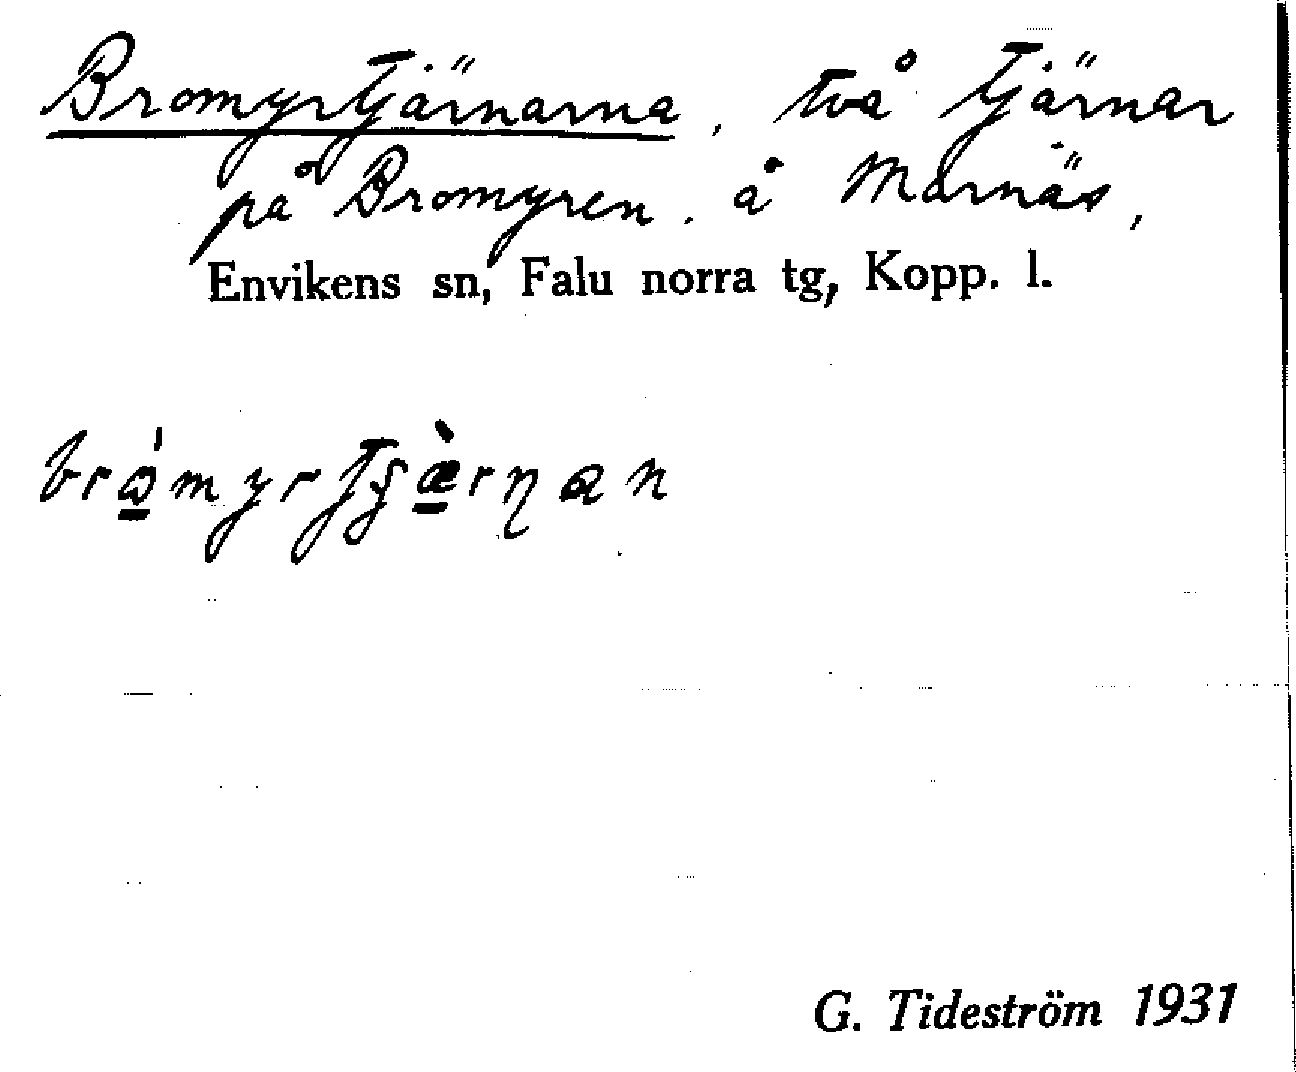 Bromyrtjärnarna, två tjärnar
på Bromyren. å Marnäs,
Envikens sn, Falu norra tg, Kopp. l.
G. Tideström 1931